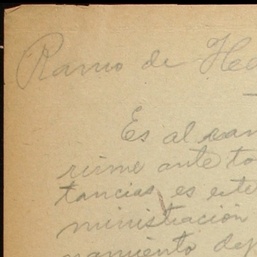 Ramo de Hac
Es al ram
rirme ante to
tancias es este
ministración
namiento dep